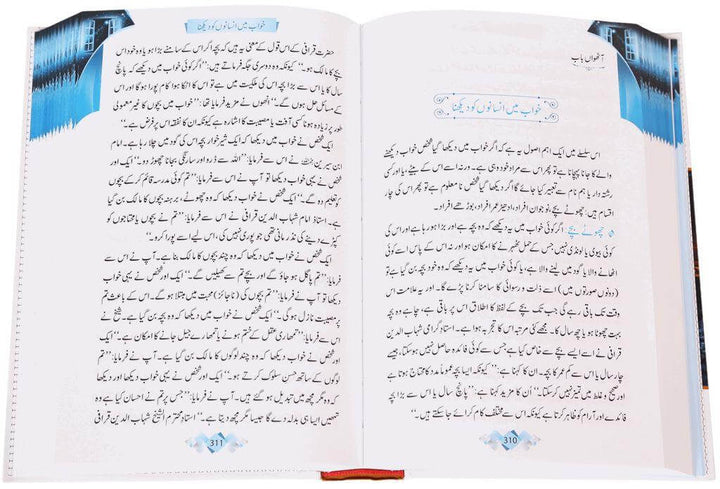 آٹھواں باب
خواب میں انسانوں کو دیکھنا
اس سلسلے میں ایک اہم اصول یہ ہے کہ اگر خواب میں دیکھا گیا شخص خواب دیکھنے
والے کا جانا پہچانا ہے تو پھر اس سے مراد خود وہی ہے۔ ورنہ اسے اس کے بیٹے، یا اور کسی
رشتہ دار یا ہم نام سے تعبیر کیا جائے گا اور اگر دیکھا گیا شخص نامعلوم ہے تو پھر اس کی چار
اقسام ہیں: چھوٹے بچے، نوجوان افراد، ادھیڑ عمر افراد، بوڑھے افراد۔
چھوٹے بچے اگر کوئی خواب میں یہ دیکھے کہ وہ بچہ ہے اور بڑا ہو رہا ہے اور اس کی
کوئی بیوی یا لونڈی نہیں جس کے حمل ٹھہرنے کا امکان ہو اور نہ اس کے پاس اسے کوئی
اٹھانے والا یا گود میں لینے والا ہے، یا کوئی خواب میں یہ دیکھے کہ وہ خود بچہ بن گیا ہے تو
(دونوں صورتوں میں) اسے ذلت و رسوائی کا سامنا کرنا پڑے گا۔ اور یہ علامت اس
وقت تک باقی رہے گی جب تک بچے کے لفظ کا اطلاق اس پر باقی ہے، چاہے وہ بچہ
بہت چھوٹا ہو یا چھ سال کا۔ مجھے کئی مرتبہ اس کا تجربہ ہوا ہے۔ استاذ گرامی شہاب الدین
قرافی نے اسے ایسے بچے سے خاص کیا ہے جس سے کوئی فائدہ حاصل نہیں ہو سکتا، جیسے
چار سال یا اس سے کم عمر کا بچہ۔ ان کا کہنا ہے: ’’کیونکہ ایسا بچہ عموماً مدد کا محتاج ہوتا ہے
اور صحیح و غلط میں تمیز نہیں کر سکتا۔‘‘ اُن کا مزید کہنا ہے: ’’پانچ سال یا اس سے بڑا بچہ
فائدے اور آرام کو ظاہر کرتا ہے کیونکہ اس سے مختلف کام کرائے جا سکتے ہیں۔‘‘
310
خواب میں انسانوں کو دیکھنا
حضرت قرافی کے اس قول کے معنی یہ ہیں کہ بچہ اگر اس کے سامنے بڑا ہو یا وہ خود اس
بچے کا مالک ہو۔‘‘ کیونکہ وہ دوسری جگہ فرماتے ہیں: ’’اگر کوئی خواب میں دیکھے کہ پانچ
سال یا اس سے بڑا بچہ اس کی ملکیت میں ہے تو اس کا اٹکا ہوا کام پورا ہو گا اور اس
کے مسائل حل ہوں گے۔‘‘ انھوں نے مزید فرمایا تھا: ’’خواب میں بچوں کا غیر معمولی
طور پر زیادہ ہونا کسی آفت یا مصیبت کا اشارہ ہے کیونکہ ان کا نفقہ اس پر فرض ہے۔‘‘
ایک شخص نے خواب میں دیکھا کہ ایک شیر خوار بچہ اس کی گود میں چلا رہا ہے۔ امام
ابن سیرین نے اس سے فرمایا: ’’اللہ سے ڈرو اور سارنگی بجانا چھوڑ دو۔‘‘ ایک اور
شخص نے یہی خواب دیکھا تو آپ نے اس سے فرمایا: ’’تم کوئی مدرسہ قائم کر کے بچوں کو
تعلیم دو گے۔‘‘ ایک شخص نے خواب دیکھا کہ وہ چھوٹے، برہنہ بچوں کا مالک بن گیا
ہے۔ استاذ امام شہاب الدین قرافی نے اس سے فرمایا: ’’تم نے بچوں یا محتاجوں کو
کپڑے دینے کی نذر مانی تھی جو پوری نہیں کی، اس لیے اسے پورا کرو۔‘‘
ایک شخص نے خواب میں دیکھا کہ وہ چند بچوں کا مالک بنا ہے۔ آپ نے اس سے
فرمایا: ’’تم پاگل ہو جاؤ گے اور بچے تم سے کھیلیں گے۔‘‘ ایک اور شخص نے یہی خواب
دیکھا تو آپ نے فرمایا: ’’تم بچوں کی (ناجائز) محبت میں مبتلا ہو گے۔ اس کے باعث تم
پر مصیبت نازل ہو گی۔‘‘ ایک شخص نے خواب میں دیکھا کہ وہ بچہ بن گیا ہے۔ شیخ نے
فرمایا: ’’تمھاری عقل کے ختم ہونے یا تمھارے جیل جانے کا امکان ہے۔‘‘ ایک
شخص نے خواب میں دیکھا کہ وہ چند لوگوں کا مالک بن گیا ہے۔ آپ نے فرمایا: ’’تم
لوگوں کے ساتھ حسن سلوک کرتے ہو۔‘‘ ایک اور شخص نے یہی خواب دیکھا اور دیکھا
کہ وہ مگرمچھ میں تبدیل ہو گئے ہیں۔ آپ نے فرمایا: ’’جس پر تم نے احسان کیا ہے وہ
تمھیں ایسا ہی بدلہ دے گا جیسا مگرمچھ دیتا ہے۔‘‘ استاذ محترم الشیخ شہاب الدین قرافی
311